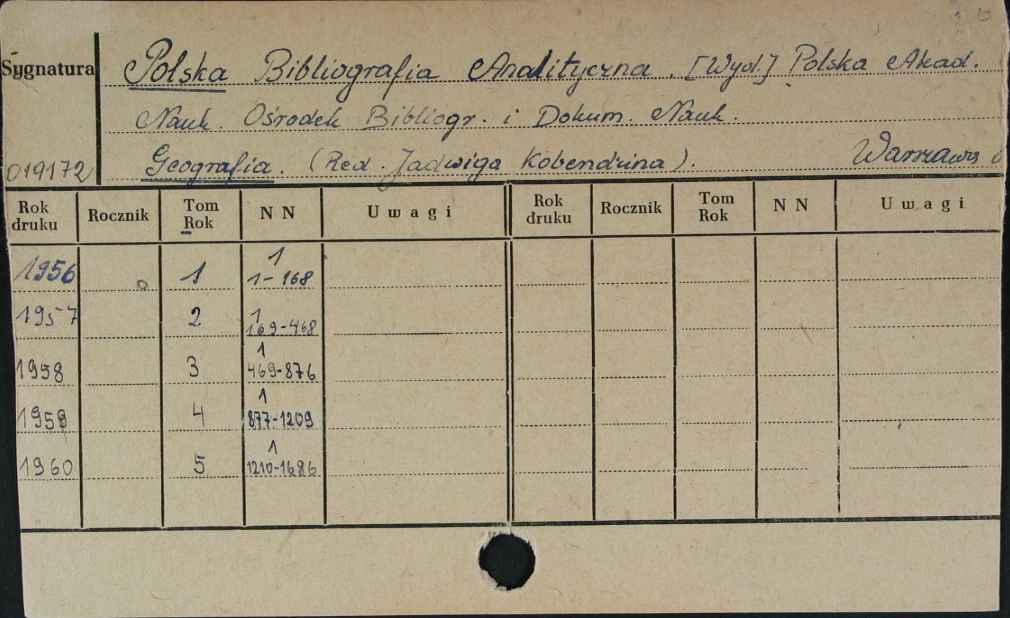 Sygnatura
Polska Bibliografia Analityczna. [Wyd.] Polska Akad.
Nauk. Ośrodek Bibliogr. i Dokum. Nauk.
019172
Geografia. (Red. Jadwiga Kobendzina). Warszawa
Rok druku Rocznik Tom Rok N N Uwagi Rok druku Rocznik Tom Rok N N Uwagi
1956 1 1
1-168
1957 2 1
169-468
1958 3 1
469-876
1959 4 1
877-1209
1960 5 1
1210-1686